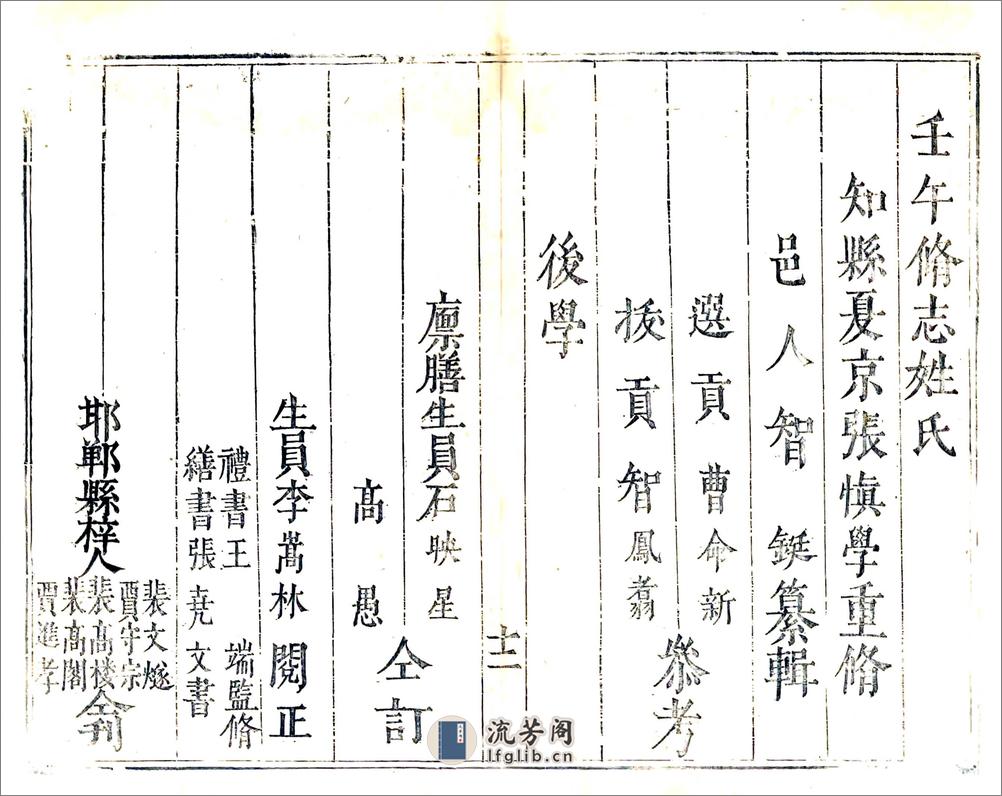 壬午脩志姓氏
知縣夏京張慎學重脩
邑人智鋌纂輯
選貢曹命新
拔貢智鳳翥
叅考
後學
十一
廪膳生員石映星
高愚
仝訂
生員李嵩林閱正
禮書王端監脩
繕書張堯文書
邯鄲縣梓人
裴文燧
賈守宗
裴高棧
裴高閣
賈進孝
仝刊
流芳阁
lfglib.cn